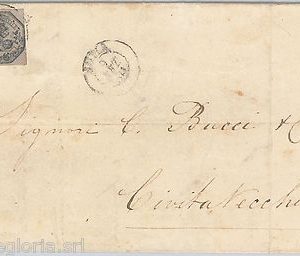 Signori C. Bucci & C
Civitavecchi
egloria.srl